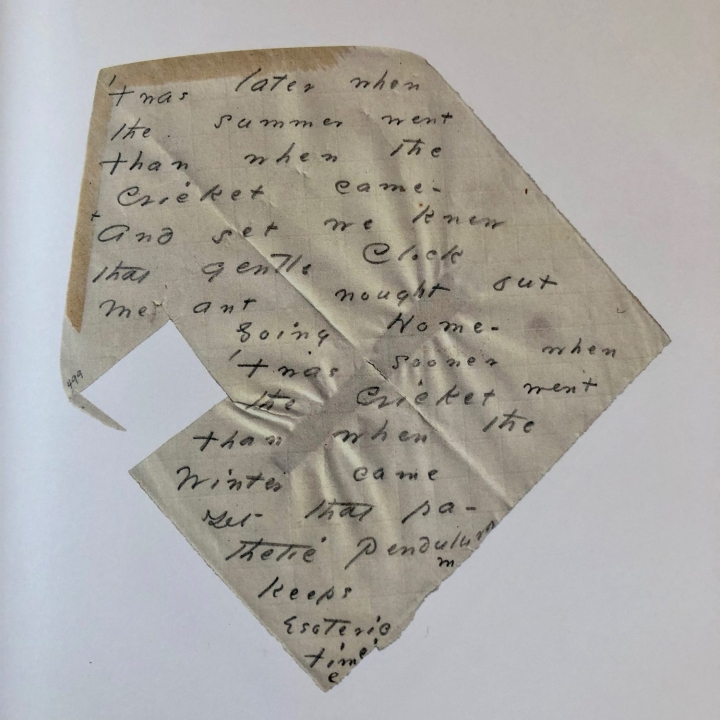 'twas later when
the summer went
than when the
Cricket came -
And yet we knew
that gentle Clock
meant nought but
Going Home -
'twas sooner when
the Cricket went
than when the
Winter came
Yet that pa-
thetic Pendulum
m
keeps
Esoteric
time
e
499